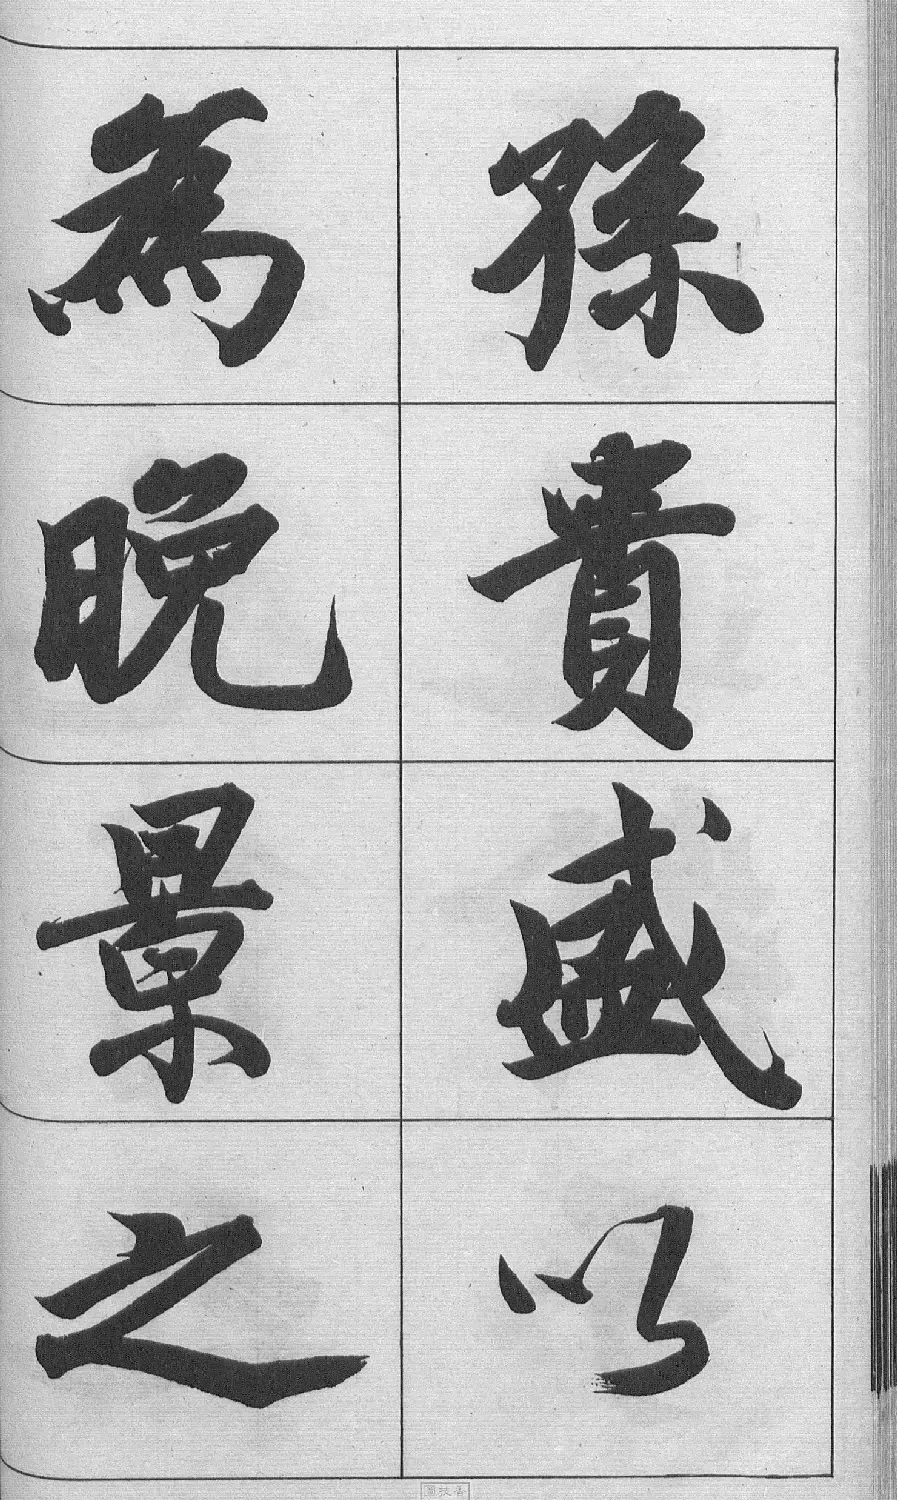 孫貴盛以
為晚景之